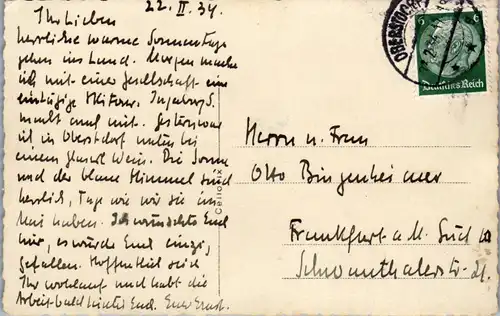 22. II. 34.
Ihr Lieben
herrliche warme Sonnentage
gehen ins Land. Morgen mache
ich mit einer Gesellschaft eine
eintägige Skitour. Ingeburg S.
macht auch mit. Gestern war
ich in Oberstdorf unten bei
einem Glaserl Wein. Die Sonne
und der blaue Himmel sind
herrlich, Tage wie wir sie im
Mai haben. Ich wünschte Euch
hier, es würde Euch einzig
gefallen. Hoffentlich seid
Ihr wohlauf und habt die
Arbeit bald hinter Euch. Euer Ernst.
Cellofix
OBERSTDORF
6
Deutsches Reich
Herrn u. Frau
Otto Bingenheimer
Frankfurt a. M. Süd
Schwanthalerstr.